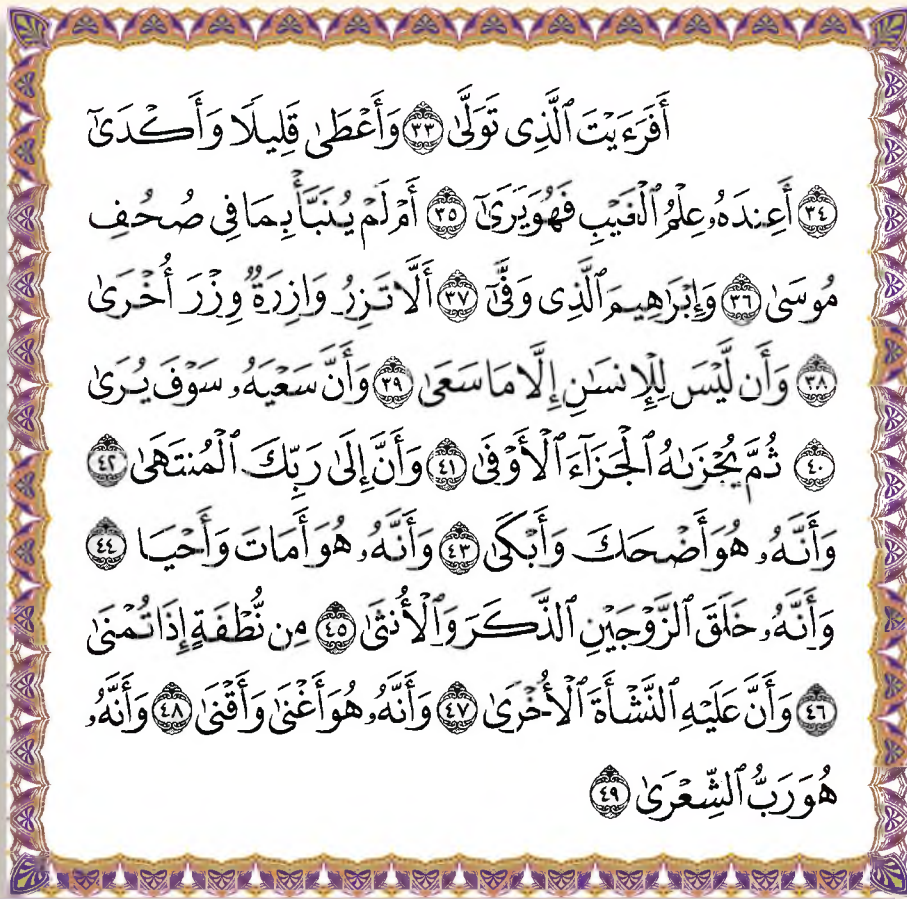 أَفَرَءَيْتَ ٱلَّذِى تَوَلَّىٰ ٣٣ وَأَعْطَىٰ قَلِيلًا وَأَكْدَىٰٓ
٣٤ أَعِندَهُۥ عِلْمُ ٱلْغَيْبِ فَهُوَ يَرَىٰٓ ٣٥ أَمْ لَمْ يُنَبَّأْ بِمَا فِى صُحُفِ
مُوسَىٰ ٣٦ وَإِبْرَٰهِيمَ ٱلَّذِى وَفَّىٰٓ ٣٧ أَلَّا تَزِرُ وَازِرَةٌ وِزْرَ أُخْرَىٰ
٣٨ وَأَن لَّيْسَ لِلْإِنسَٰنِ إِلَّا مَا سَعَىٰ ٣٩ وَأَنَّ سَعْيَهُۥ سَوْفَ يُرَىٰ
٤٠ ثُمَّ يُجْزَىٰهُ ٱلْجَزَآءَ ٱلْأَوْفَىٰ ٤١ وَأَنَّ إِلَىٰ رَبِّكَ ٱلْمُنتَهَىٰ ٤٢
وَأَنَّهُۥ هُوَ أَضْحَكَ وَأَبْكَىٰ ٤٣ وَأَنَّهُۥ هُوَ أَمَاتَ وَأَحْيَا ٤٤
وَأَنَّهُۥ خَلَقَ ٱلزَّوْجَيْنِ ٱلذَّكَرَ وَٱلْأُنثَىٰ ٤٥ مِن نُّطْفَةٍ إِذَا تُمْنَىٰ
٤٦ وَأَنَّ عَلَيْهِ ٱلنَّشْأَةَ ٱلْأُخْرَىٰ ٤٧ وَأَنَّهُۥ هُوَ أَغْنَىٰ وَأَقْنَىٰ ٤٨ وَأَنَّهُۥ
هُوَ رَبُّ ٱلشِّعْرَىٰ ٤٩